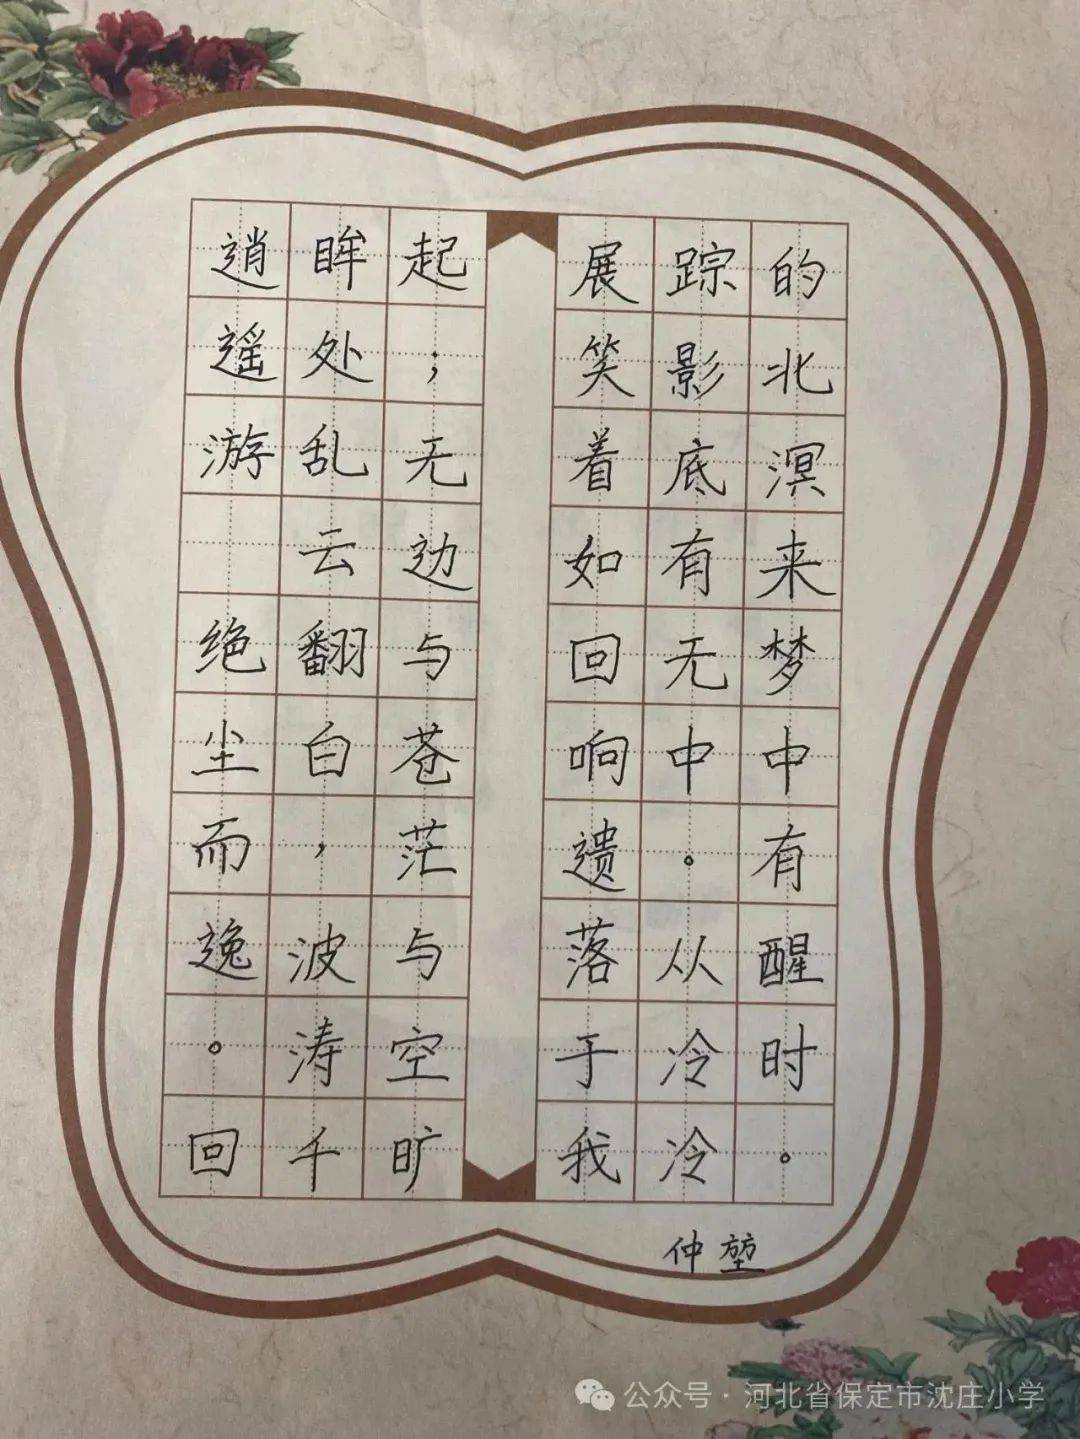 逍遥游 绝尘而逸。回
眸处乱云翻白，波涛千
起；无边与苍茫与空旷
展笑着如回响遗落于我
踪影底有无中。从冷冷
的北溟来梦中有醒时。
仲堃
公众号·河北省保定市沈庄小学